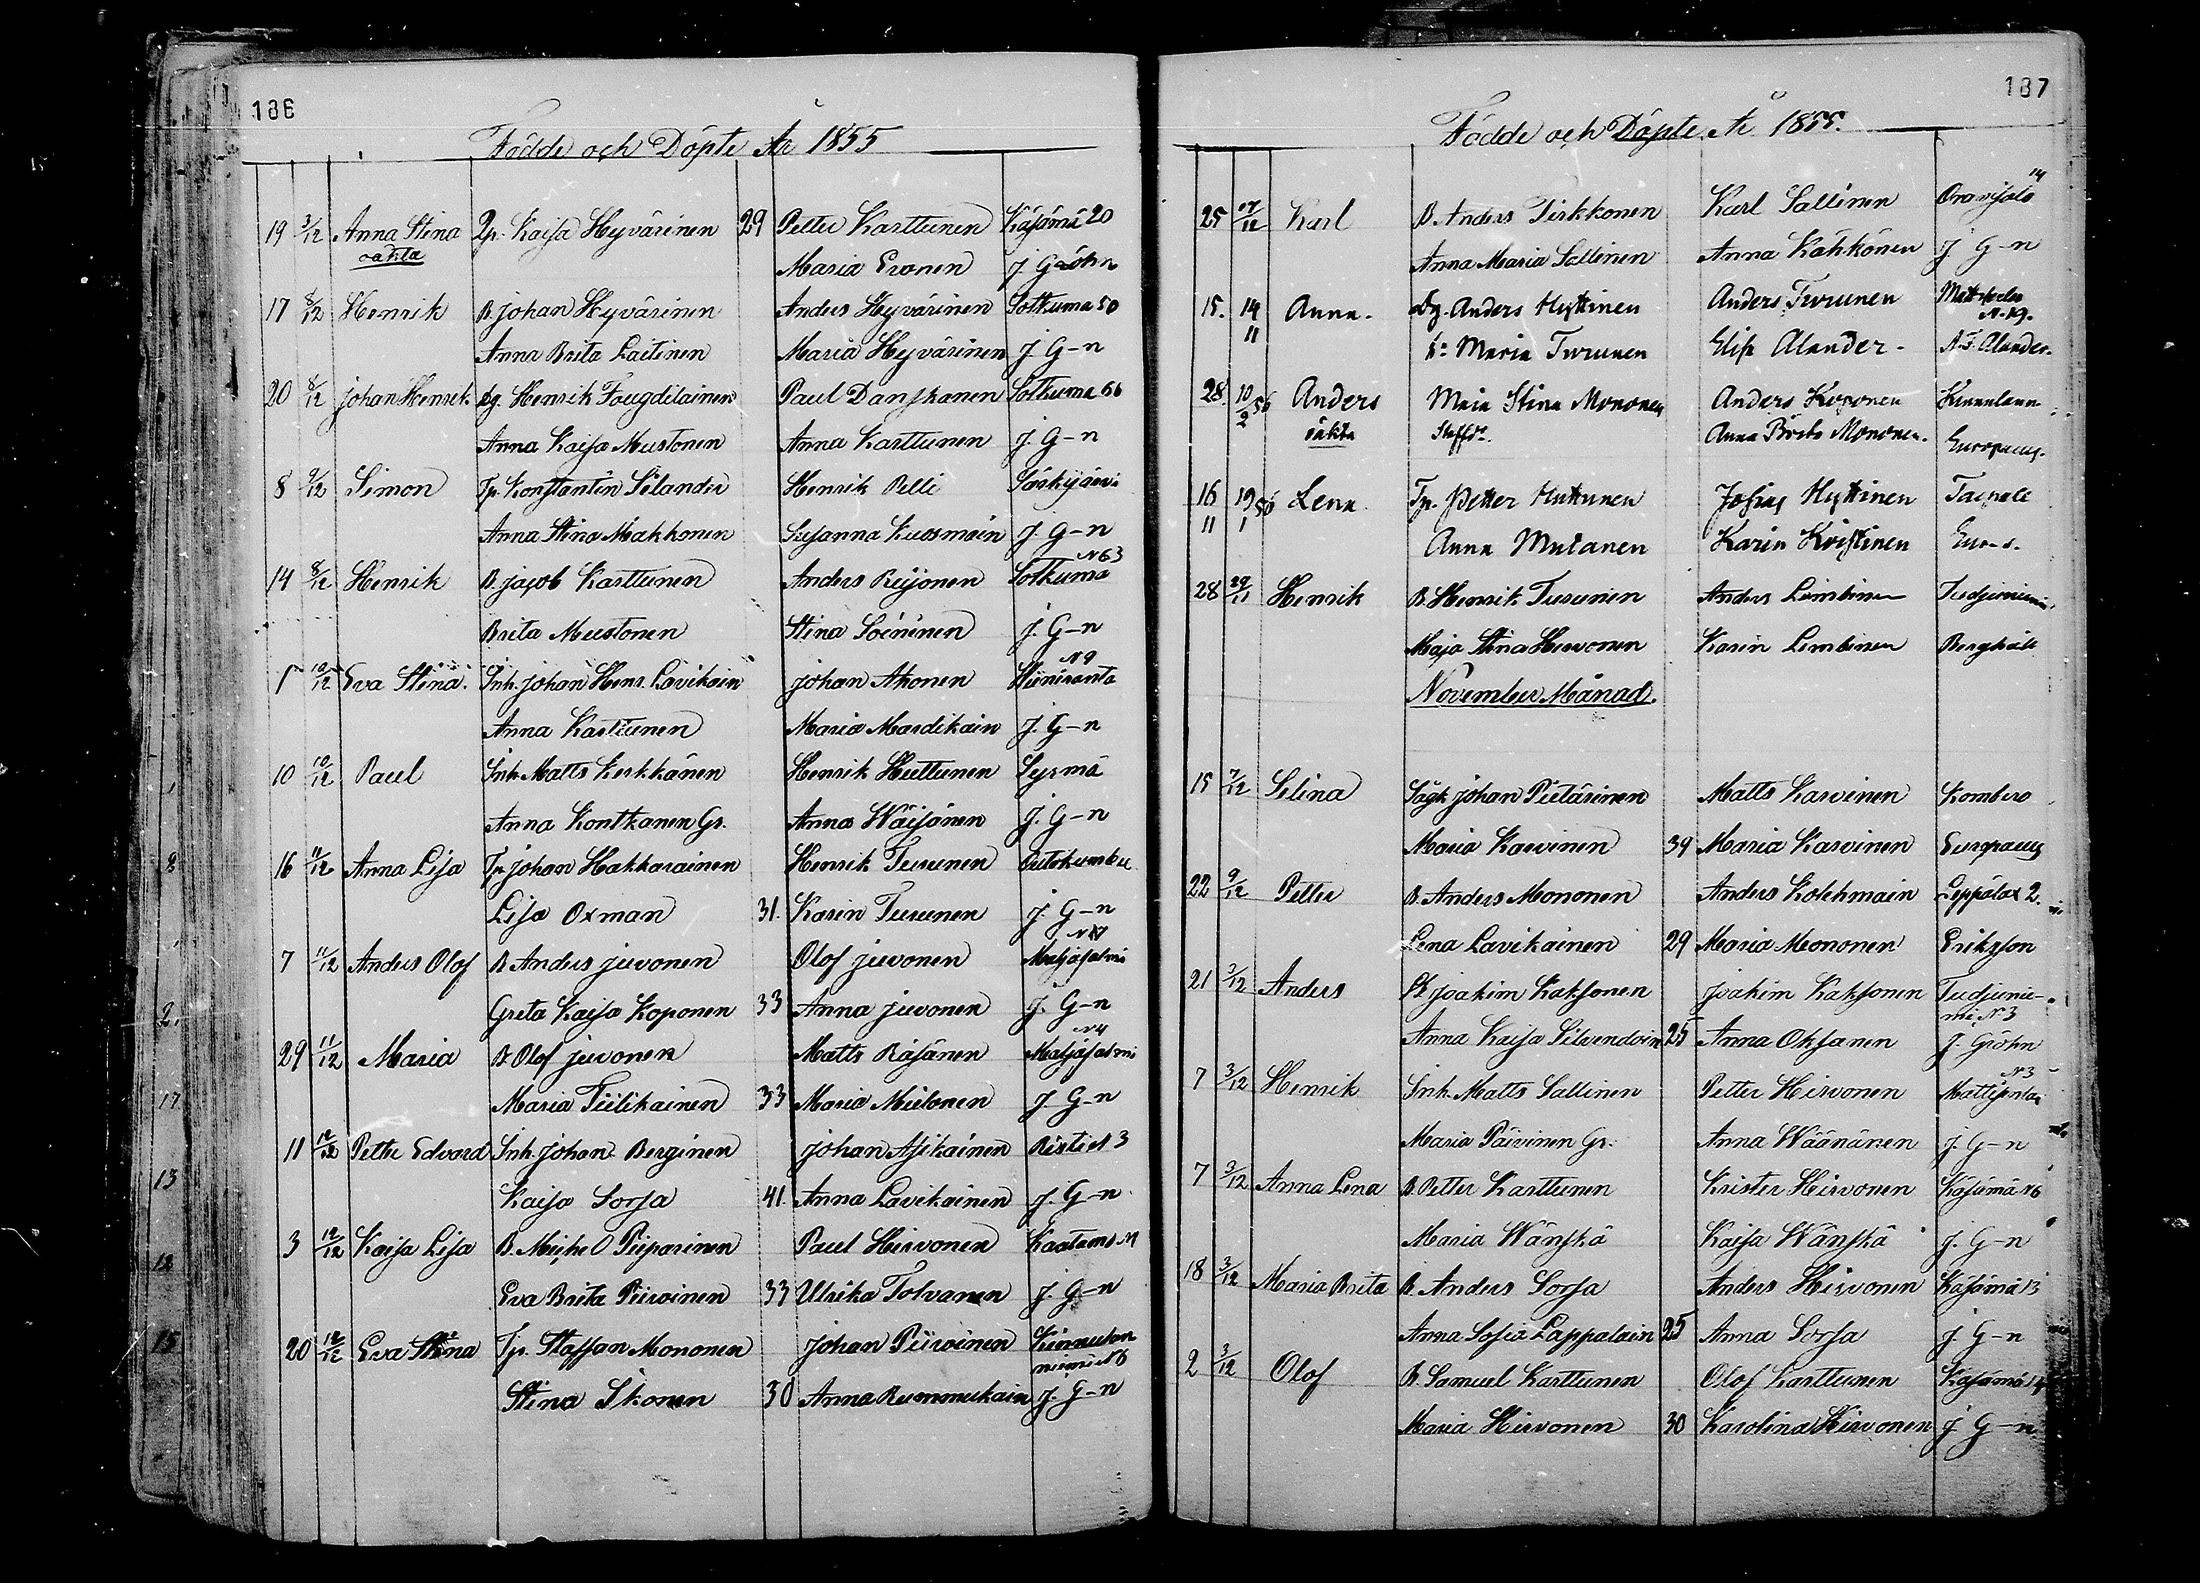 186
Födde och Döpte År 1855
19 3/12 Anna Stina Pp. Kaisa Hyvärinen 29 Petter Karttunen Käsämä 20
oäkta Maria Evonen J. Gröhn
17 8/12 Henrik B. Johan Hyvärinen Anders Hyvärinen Sotkuma 50
Anna Brita Laitinen Maria Hyvärinen J. G-n
20 8/12 Johan Henrik Dg. Henrik Fougdilainen Paul Danskanen Sotkuma 66
Anna Kaisa Mustonen Anna Karttunen J. G-n
8 9/12 Simon Tp. Konstantin Silander Henrik Pelli Särkijärvi
Anna Stina Makkonen Susanna Kuosmain J. G-n
14 8/12 Henrik B. Jacob Karttunen Anders Reijonen Sotkuma N63
Brita Mustonen Stina Soininen J. G-n
1 10/12 Eva Stina Inh. Johan Henr. Lavikain Johan Ahonen Niiniranta N9
Anna Karttunen Maria Mardikain J. G-n
10 10/12 Paul Inh. Matts Kerkkänen Henrik Huttunen Sysmä
Anna Kontkanen Gr. Anna Wäisänen J. G-n
16 11/12 Anna Lisa Tp. Johan Hakkarainen Henrik Turunen Outokumbu
Lisa Oxman 31. Karin Turunen J. G-n
7 11/12 Anders Olof B. Anders Juvonen Olof Juvonen Maljasalmi
Greta Kaisa Koponen 33 Anna Juvonen J. G-n
29 11/12 Maria B. Olof Juvonen Matts Räsänen Maljasalmi N4
Maria Tiilikainen 33 Maria Mielonen J. G-n
11 12/12 Petter Edvard Inh. Johan Berginen Johan Asikainen Risti N 3
Kaisa Sorsa 41. Anna Lavikainen J. G-n
3 12/12 Kaisa Lisa B. Michel Piiparinen Paul Hirvonen Kaatamo
Eva Brita Piiroinen 33 Ulrika Tolvanen J. G-n
20 12/12 Eva Stina Tp. Staffan Mononen Johan Piiroinen Kinnulan
niemi N6
Stina Ikonen 30 Anna Rummukain J. G-n
187
Födde och Döpte År 1855.
25 17/12 Karl B. Anders Tirkkonen Karl Sallinen Oravisalo 14
Anna Maria Sallinen Anna Kähkönen J G-n
15. 14/11 Anna. Dg. Anders Hyttinen Anders Turunen N.19.
Hr. Maria Turunen Elis. Alander. A.F. Alander.
28. 10/2 56 Anders Maia Stina Mononen Anders Koponen
oäkta Staffdr. Anna Brita Mononen. Europaeus.
16/11 19/1 56 Lena Tp. Petter Huttunen Josias Hyttinen Taipale
Anna Mutanen Karin Kristinen
28 29/11 Henrik B. Henrik Turunen Anders Limbinen Tudjuniemi
Maja Stina Hirvonen Karin Limbinen Berghäll
November Månad.
15 7/12 Selina Sågk. Johan Pietärinen Matts Karvinen Kombero
Maria Karvinen 39 Maria Karvinen Europaeus
22 9/12 Petter B. Anders Mononen Anders Kolehmain Leppälax 2.
Lena Lavikainen 29 Maria Mononen Eriksson
21 3/12 Anders Joakim Kaksonen Joakim Kaksonen Tudjunie-
mi N 3
Anna Kaisa Silvendoin 25 Anna Oksanen J. Gröhn
7 3/12 Henrik Inh. Matts Sallinen Petter Hirvonen Mattisenlax N3
Maria Päivinen Gr. Anna Wäänänen J. G-n
7 3/12 Anna Lena B. Petter Karttunen Krister Hirvonen Käsämä 16
Maria Wänskä Kaisa Wänskä J. G-n
18 3/12 Maria Brita B. Anders Sorsa Anders Hirvonen Käsämä 13
Anna Sofia Lappalain 25 Anna Sorsa J G-n
2 3/12 Olof B. Samuel Karttunen Olof Karttunen Käsämä 14
Maria Hirvonen 30 Karolina Hirvonen J G-n